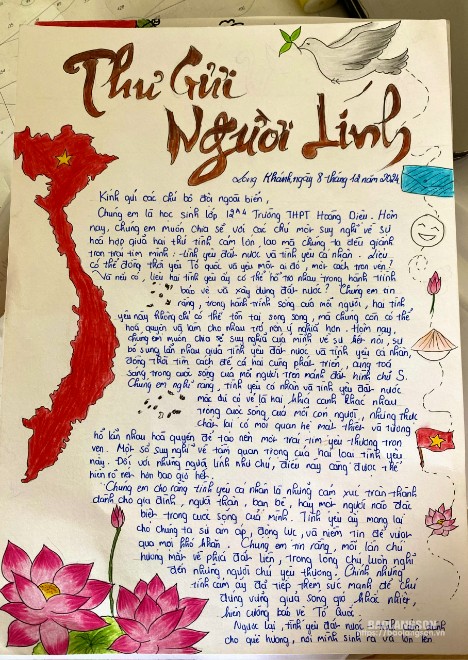 Thư Gửi
Người Lính
Long Khánh, ngày 8 tháng 12 năm 2024
Kính gửi các chú bộ đội ngoài biển,
Chúng em là học sinh lớp 12A4 Trường THPT Hoàng Diệu. Hôm
nay, chúng em muốn chia sẻ với các chú một suy nghĩ về sự
hoà hợp giữa hai thứ tình cảm lớn lao mà chúng ta đều giành
trọn trái tim mình: tình yêu đất nước và tình yêu cá nhân. Liệu
có thể đồng thời yêu Tổ quốc và yêu một ai đó, một cách trọn vẹn?
Và nếu có, liệu hai tình yêu ấy có thể hỗ trợ nhau trong hành trình
bảo vệ và xây dựng đất nước? Chúng em tin
rằng, trong hành trình sống của mỗi người, hai tình
yêu này không chỉ có thể tồn tại song song, mà chúng còn có thể
hoà quyện và làm cho nhau trở nên ý nghĩa hơn. Hôm nay,
chúng em muốn chia sẻ suy nghĩ của mình về sự kết nối, sự
bổ sung lẫn nhau giữa tình yêu đất nước và tình yêu cá nhân,
đồng thời tìm cách để cả hai cùng phát triển, cùng toả
sáng trong cuộc sống của mỗi người trên mảnh đất hình chữ S.
Chúng em nghĩ rằng, tình yêu cá nhân và tình yêu đất nước
mặc dù có vẻ là hai khía cạnh khác nhau
trong cuộc sống của mỗi con người, nhưng thực
chất lại có mối quan hệ mật thiết và tương
hỗ lẫn nhau hoà quyện để tạo nên một trái tim yêu thương trọn
vẹn. Một số suy nghĩ về tầm quan trọng của hai loại tình yêu
này. Đối với những người lính như chú, điều này càng được thể
hiện rõ nét hơn bao giờ hết.
Chúng em cho rằng tình yêu cá nhân là những cảm xúc trân thành
dành cho gia đình, người thân, bạn bè, hay một người nào đặc
biệt trong cuộc sống của mình. Tình yêu ấy mang lại
cho chúng ta sự ấm áp, động lực, và niềm tin để vượt
qua mọi khó khăn. Chúng em tin rằng, mỗi lần chú
hướng mắt về phía đất liền, trong lòng chú luôn nghĩ
đến những người chú yêu thương. Chính những
tình cảm ấy đã tiếp thêm sức mạnh để chú
đứng vững giữa sóng gió khắc nghiệt,
kiên cường bảo vệ Tổ Quốc.
Ngược lại, tình yêu đất nước
cho quê hương, nơi mình sinh ra và lớn lên
BAOLANGSON
https://baolangson.vn